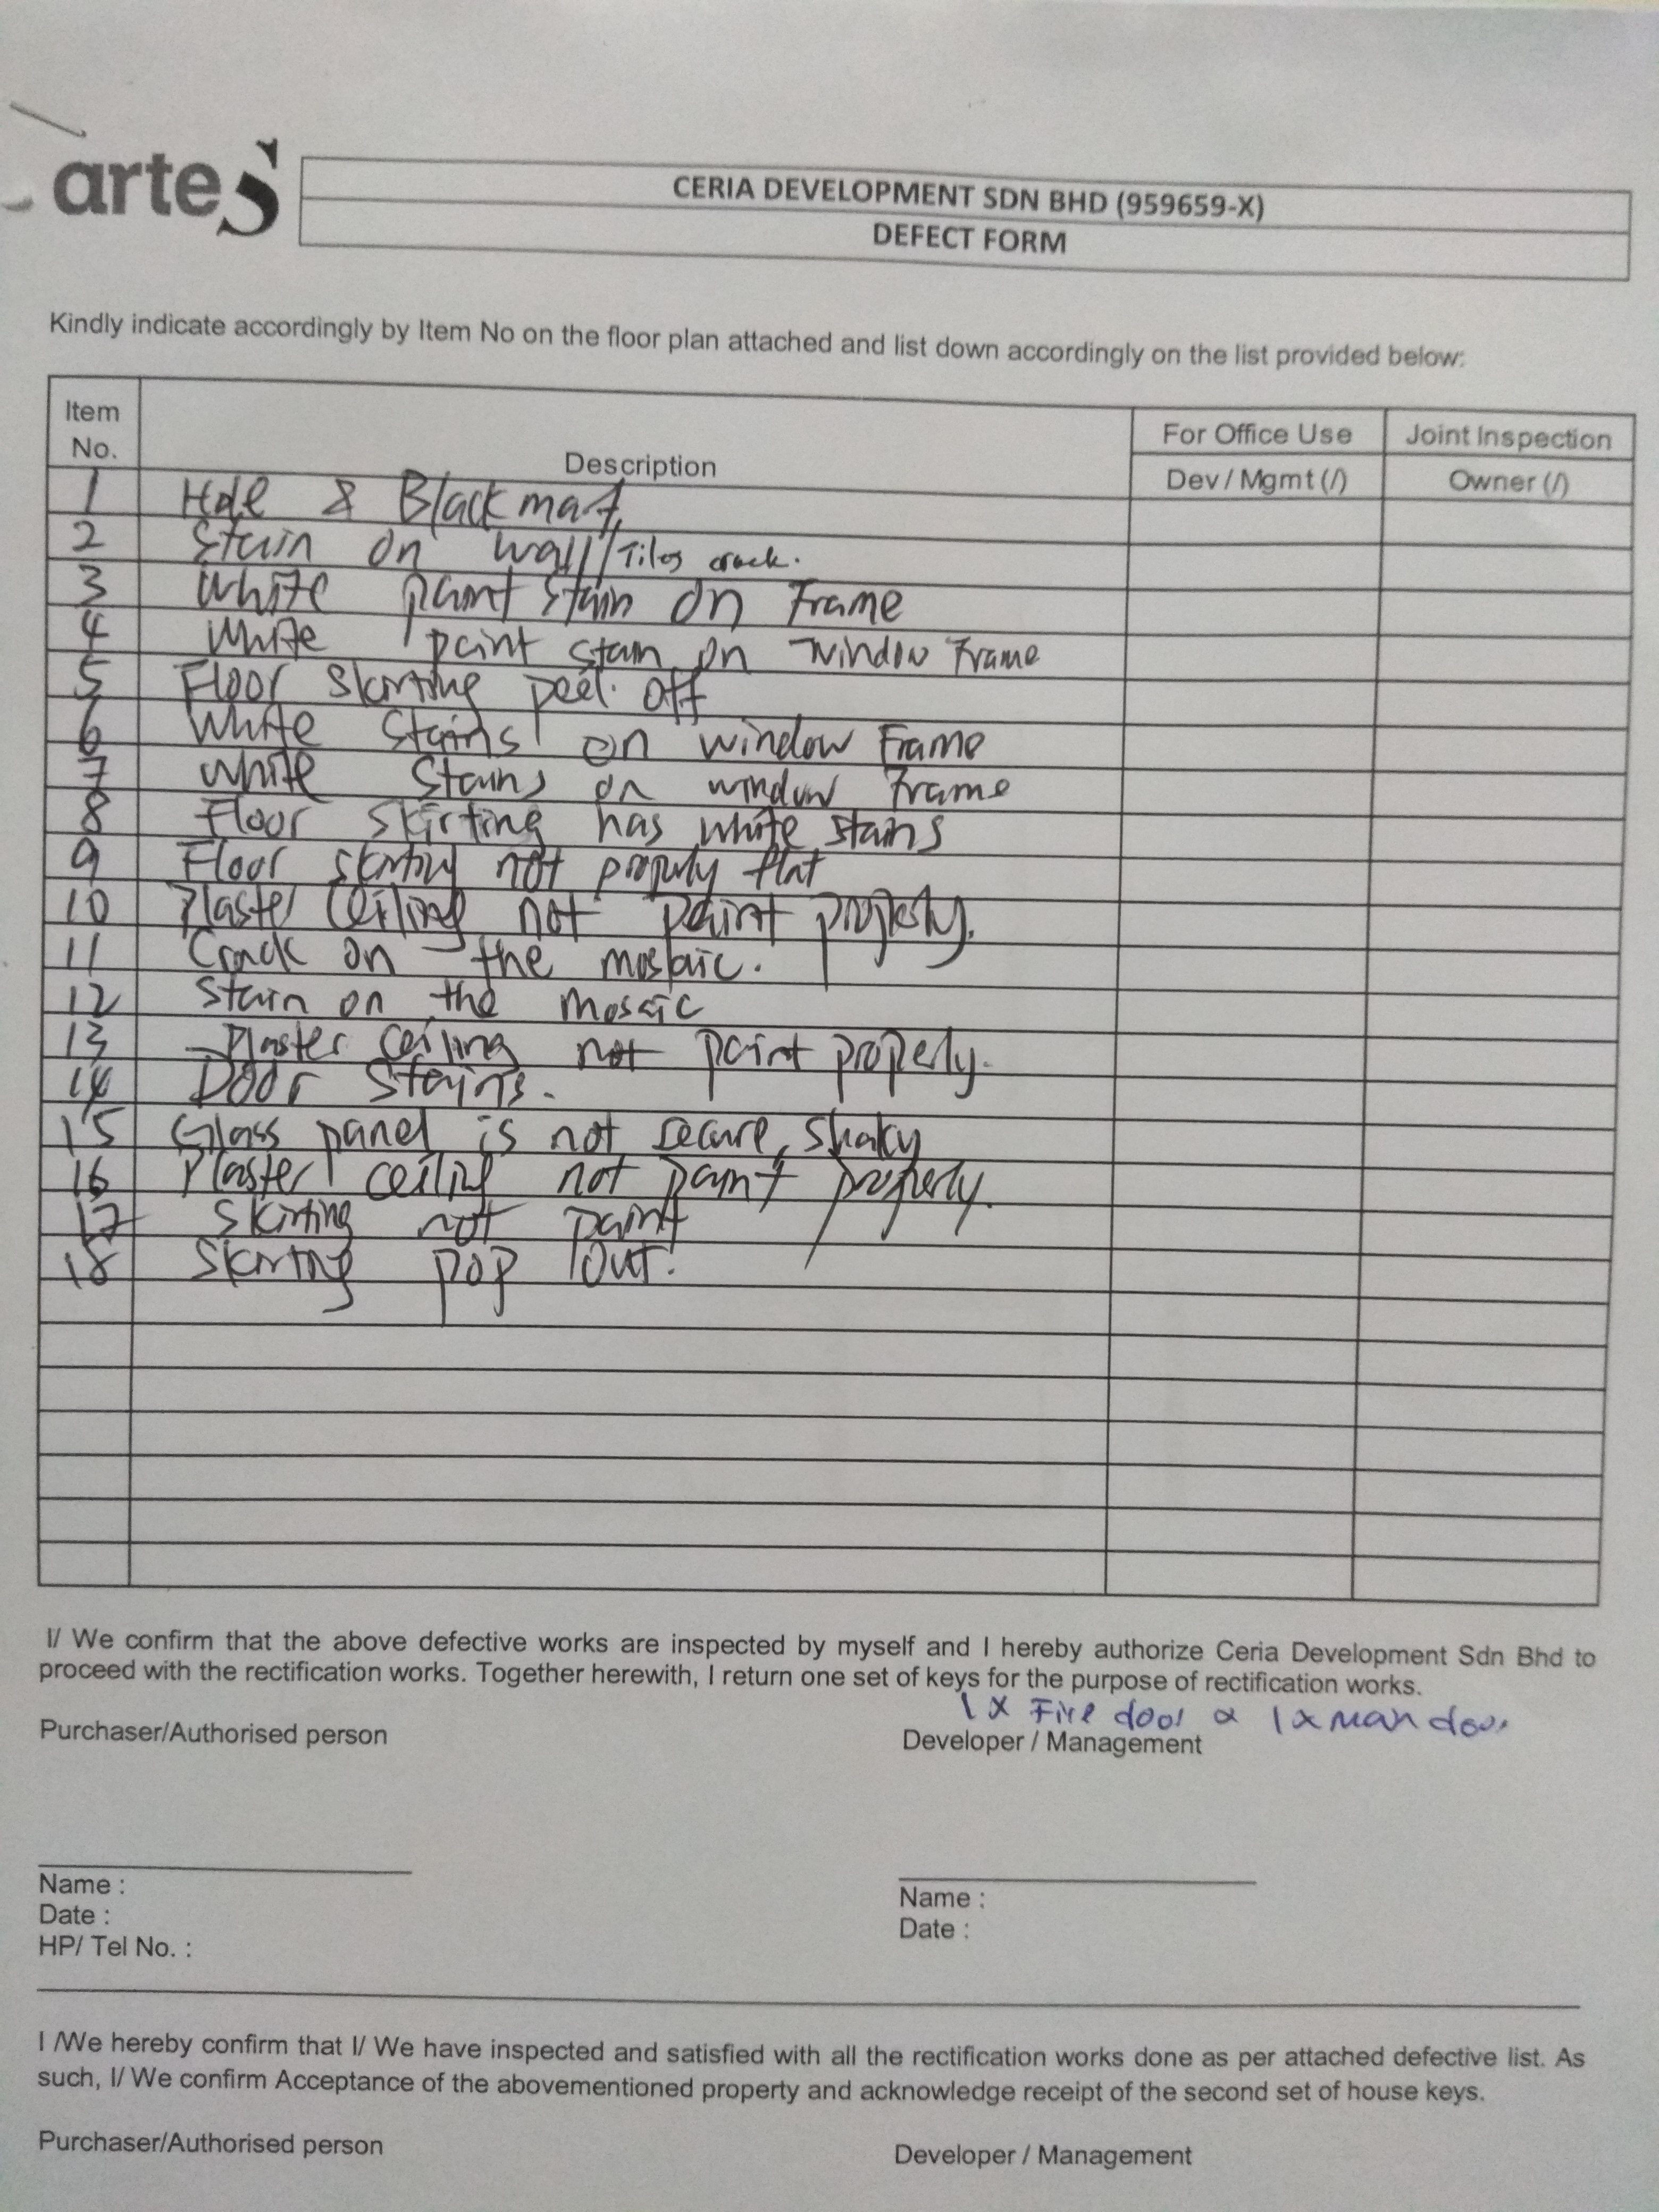 arteS
CERIA DEVELOPMENT SDN BHD (959659-X)
DEFECT FORM
Kindly indicate accordingly by Item No on the floor plan attached and list down accordingly on the list provided below:
Item No. Description For Office Use Joint Inspection
Dev / Mgmt (/) Owner (/)
1 Hole & Black mark
2 Stain on wall/Tiles crack.
3 White paint stain on Frame
4 White paint stain on window Frame
5 Floor Skirting peel off
6 White Stains on window Frame
7 White Stains on window Frame
8 Floor Skirting has white stains
9 Floor skirting not properly flat
10 Plaster Ceiling not paint properly.
11 Crack on the mosaic.
12 Stain on the Mosaic
13 Plaster Ceiling not paint properly.
14 Door Stains.
15 Glass panel is not secure, shaky
16 Plaster ceiling not paint properly.
17 Skirting not paint
18 Skirting pop out.
I/ We confirm that the above defective works are inspected by myself and I hereby authorize Ceria Development Sdn Bhd to
proceed with the rectification works. Together herewith, I return one set of keys for the purpose of rectification works.
1 x Fire door & 1 x Man door
Purchaser/Authorised person Developer / Management
Name : Name :
Date : Date :
HP/ Tel No. :
I /We hereby confirm that I/ We have inspected and satisfied with all the rectification works done as per attached defective list. As
such, I/ We confirm Acceptance of the abovementioned property and acknowledge receipt of the second set of house keys.
Purchaser/Authorised person Developer / Management